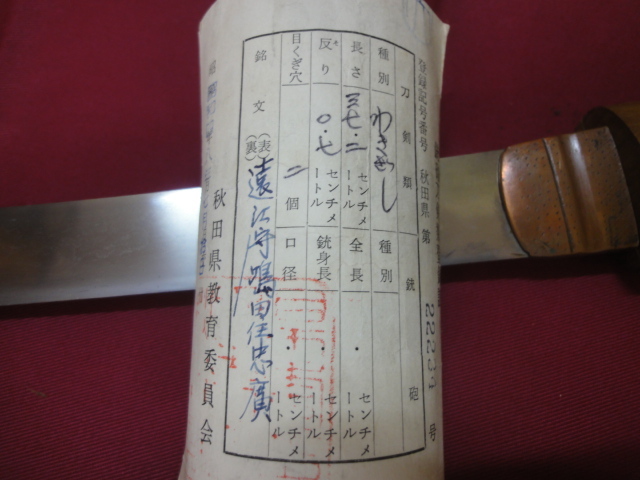 登録記号番号 秋田県 第 22234 号
刀剣類 銃砲
種別 わきざし 種別
長さ 三七・二 センチメートル 全長 ・ センチメートル
反り 〇・七 センチメートル 銃身長 ・ センチメートル
目くぎ穴 二 個 口径 ・ センチメートル
銘文 (表) 遠江守 田住忠廣
(裏)
秋田県教育委員会